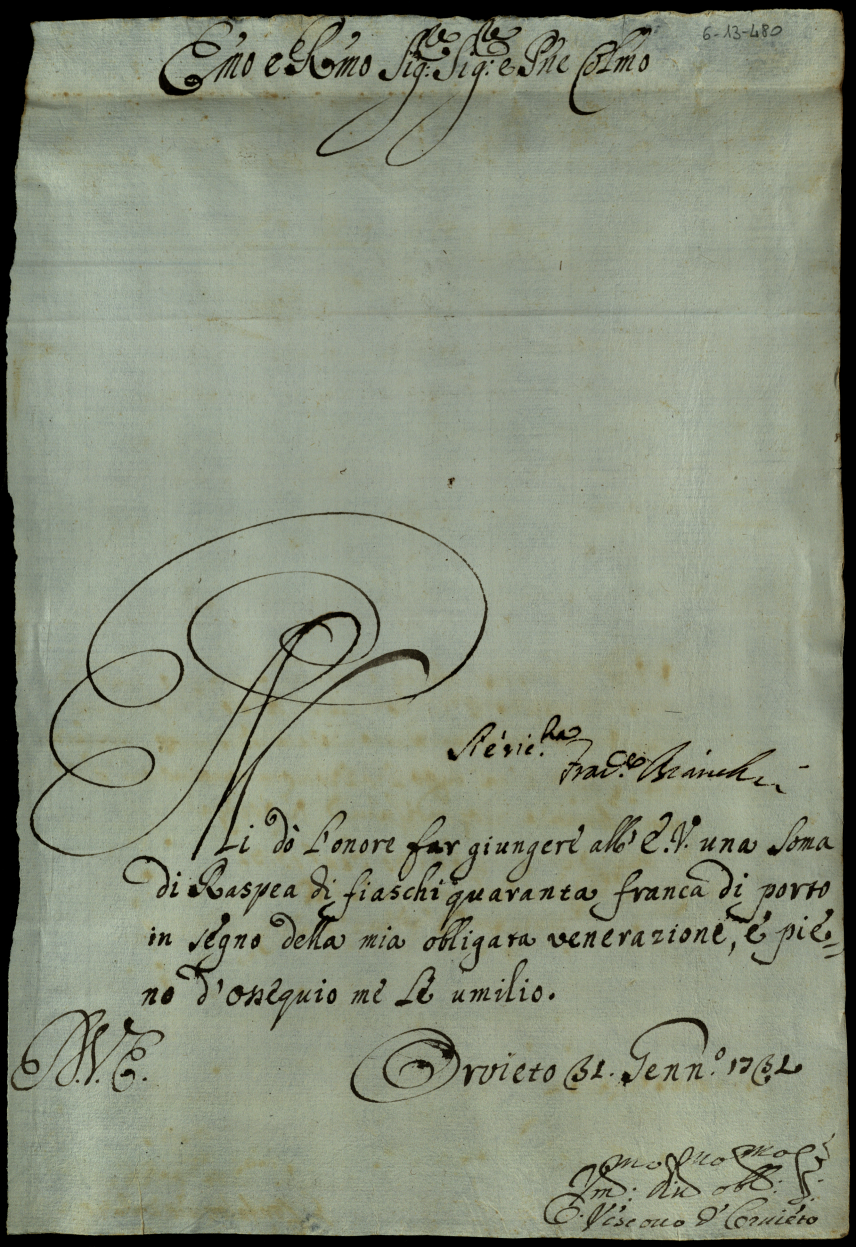 6-13-480
Emo e Rmo Sig:re Sig:re e Pne Colmo
Mi dò l'onore far giungere all'E.V. una Soma
di Raspea di fiaschi quaranta franca di porto
in segno della mia obligata venerazione, e pie=
no d'ossequio me le umilio.
Orvieto 31. Genn.o 1731
Vescovo d'Orvieto